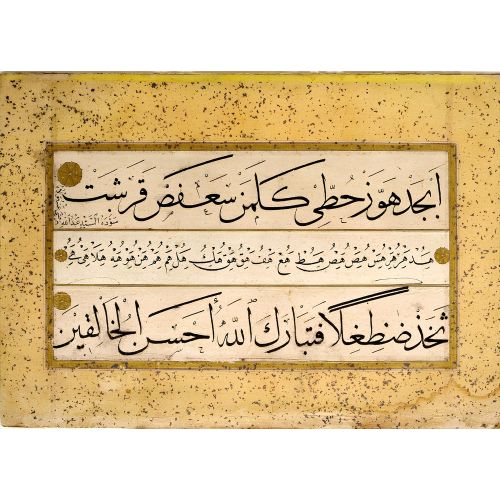 ابجد هوز حطي كلمن سعفص قرشت
سوده السيد عبدالله
هص هط هع هف هق هك هل هم هن هو هه هلا هى
ثخذ ضظغلا فتبارك الله أحسن الخالقين